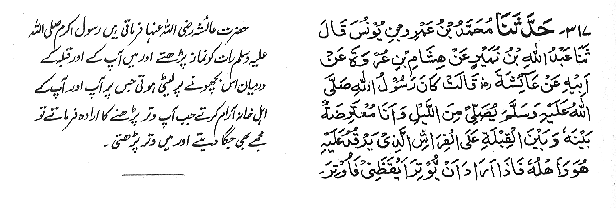 ۳۱۷- حَدَّثَنَا مُحَمَّدُ بْنُ عَمْرِو بْنِ يُونُسَ قَالَ
ثَنَا عَبْدُ اللهِ بْنُ نُمَيْرٍ عَنْ هِشَامِ بْنِ عُرْوَةَ عَنْ
اَبِيْهِ عَنْ عَائِشَةَ رَضِ قَالَتْ كَانَ رَسُوْلُ اللهِ صَلَّى
اللهُ عَلَيْهِ وَسَلَّمَ يُصَلِّىْ مِنَ اللَّيْلِ وَاَنَا مُعْتَرِضَةٌ
بَيْنَهٗ وَبَيْنَ الْقِبْلَةِ عَلَى الْفِرَاشِ الَّذِىْ يَرْقُدُ عَلَيْهِ
هُوَ وَاَهْلُهٗ فَاِذَا اَرَادَ اَنْ يُّوْتِرَ اَيْقَظَنِىْ فَاُوْتِرَ
حضرت عائشہ رضی اللہ عنہا فرماتی ہیں رسول اکرم صلی اللہ
علیہ وسلم رات کو نماز پڑھتے اور میں آپ کے اور قبلہ کے
درمیان اس بچھونے پر لیٹی ہوتی جس پر آپ اور آپ کے
اہل خانہ آرام کرتے جب آپ وتر پڑھنے کا ارادہ فرماتے تو
مجھے بھی جگا دیتے اور میں وتر پڑھتی۔